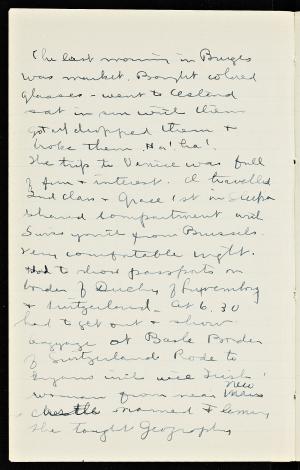 The last morning in Bruges
was market. Bought colored
glasses - went to Ostend
sat in sun with them
got out dropped them +
broke them. Ha! ha!
The trip to Venice was full
of fun + interest. I travelled
2nd class + Grace 1st in sleeper
shared compartment with
Swiss youth from Brussels.
Very comfortable night.
Had to show passports on
border of Duchy of Luxemburg
+ Switzerland. At 6.30
had to get out + show
luggage at Basle Border
of Switzerland. Rode to
with nice Irish
woman from near New
named Fleming
She taught Geography